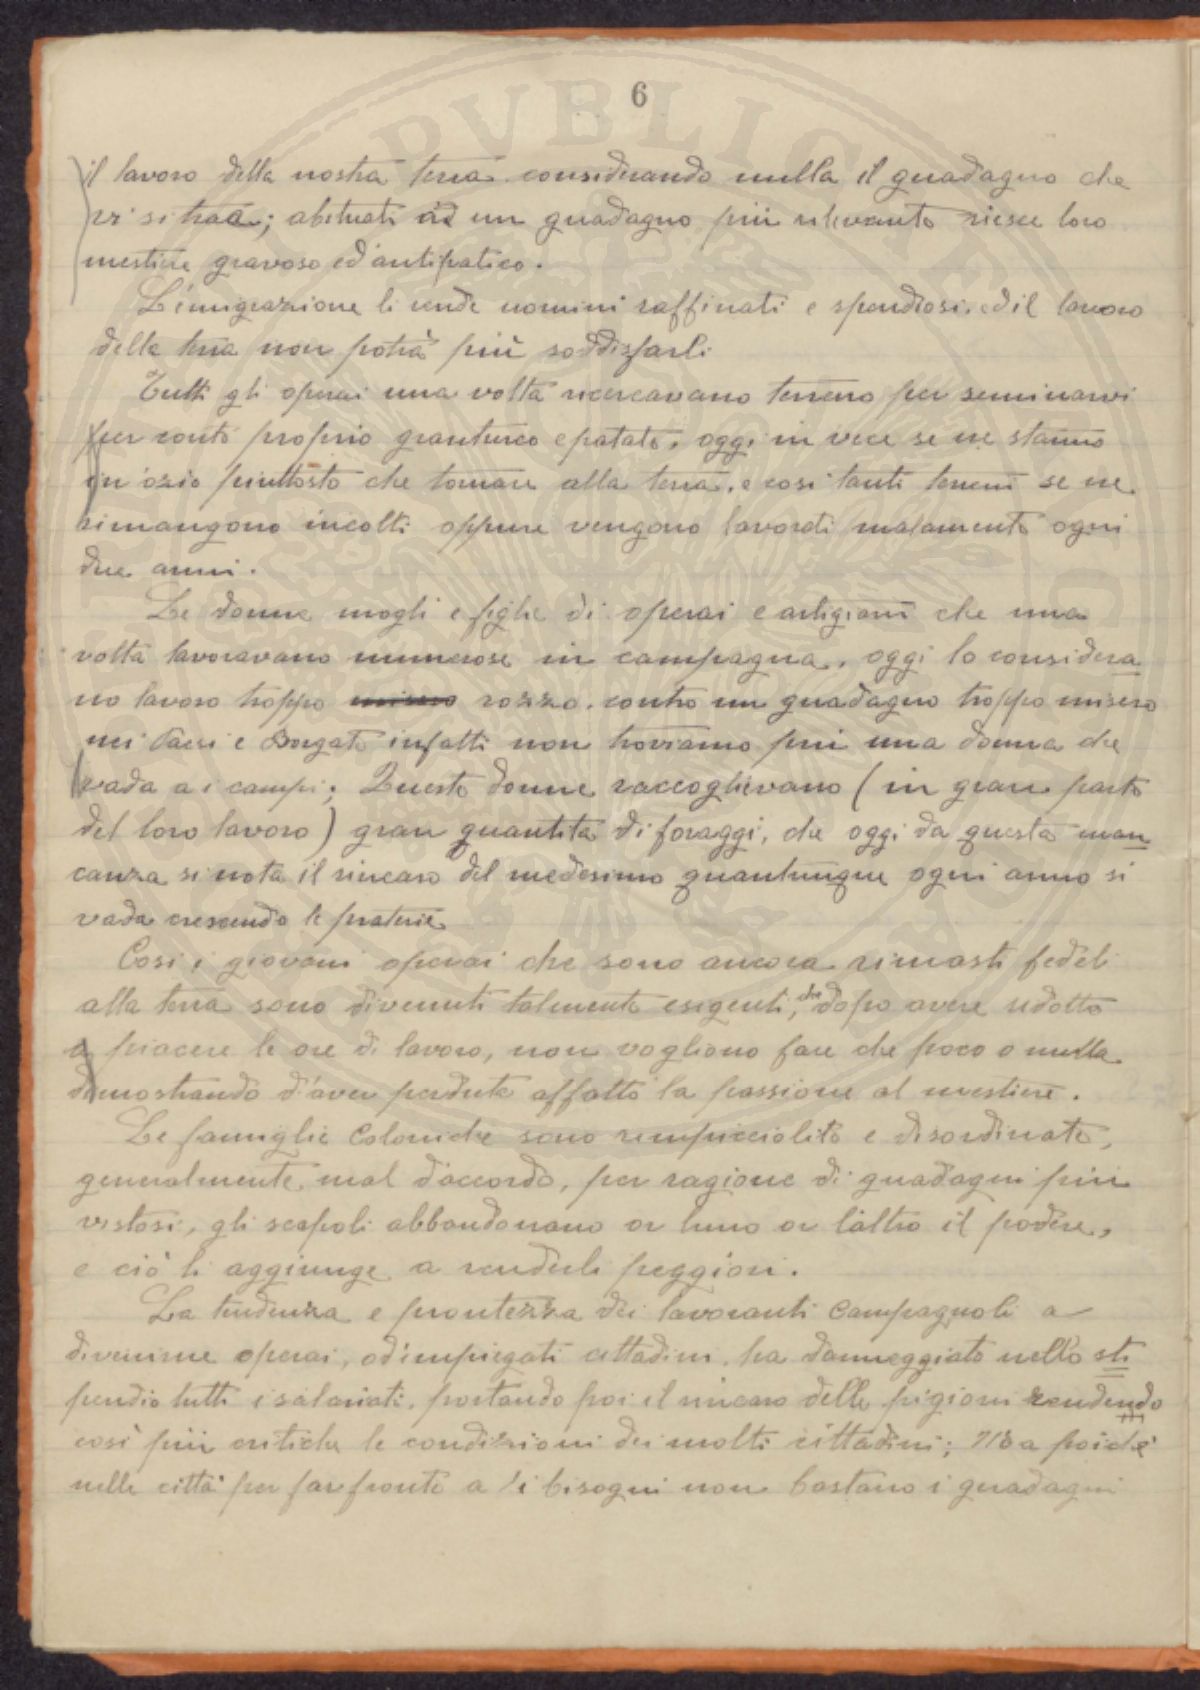 6
il lavoro della nostra terra considerando nulla il guadagno che
vi si trae; abituati ad un guadagno più rilevante riesce loro
mestiere gravoso ed antipatico.
L'emigrazione li rende uomini raffinati e spendiosi, ed il lavoro
della terra non potrà più soddisfarli
Tutti gli operai una volta ricercavano terreno per seminarvi
per conto proprio granturco e patate, oggi in vece se ne stanno
in ozio piuttosto che tornare alla terra, e così tanti terreni se ne
rimangono incolti oppure vengono lavorati malamente ogni
due anni.
Le donne mogli e figlie di operai e artigiani che una
volta lavoravano numerose in campagna, oggi lo considera
no lavoro troppo misero rozzo, contro un guadagno troppo misero
nei Paesi e Borgate infatti non troviamo più una donna che
vada a i campi; Queste donne raccoglievano (in gran parte
del loro lavoro) gran quantità di foraggi, che oggi da questa man
canza si nota il rincaro del medesimo quantunque ogni anno si
vada crescendo le praterie
Così i giovani operai che sono ancora rimasti fedeli
alla terra sono divenuti talmente esigenti, che dopo avere ridotto
a piacere le ore di lavoro, non vogliono fare che poco o nulla
dimostrando d'aver perduta affatto la passione al mestiere.
Le famiglie Coloniche sono rimpicciolite e disordinate,
generalmente mal d'accordo, per ragione di guadagni più
vistosi, gli scapoli abbandonano or l'uno or l'altro il podere,
e ciò li aggiunge a renderli peggiori.
La tendenza e prontezza dei lavoranti Campagnoli a
divenirne operai, od impiegati cittadini, ha danneggiato nello sti
pendio tutti i salariati, portando poi il rincaro delle pigioni rendendo
così più critiche le condizioni dei molti cittadini; Ma poiché
nelle città per far fronte a li bisogni non bastano i guadagni